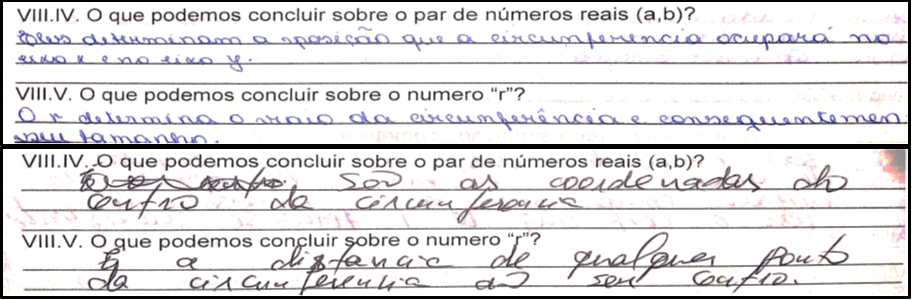 VIII.IV. O que podemos concluir sobre o par de números reais (a,b)?
Eles determinam a posição que a circunferencia ocupará no
eixo x e no eixo y.
VIII.V. O que podemos concluir sobre o numero “r”?
O r determina o raio da circunferência e consequentemen
seu tamanho.
VIII.IV. O que podemos concluir sobre o par de números reais (a,b)?
São as coordenadas do
centro da circunferencia
VIII.V. O que podemos concluir sobre o numero “r”?
É a distancia de qualquer ponto
da circunferencia ao seu centro.